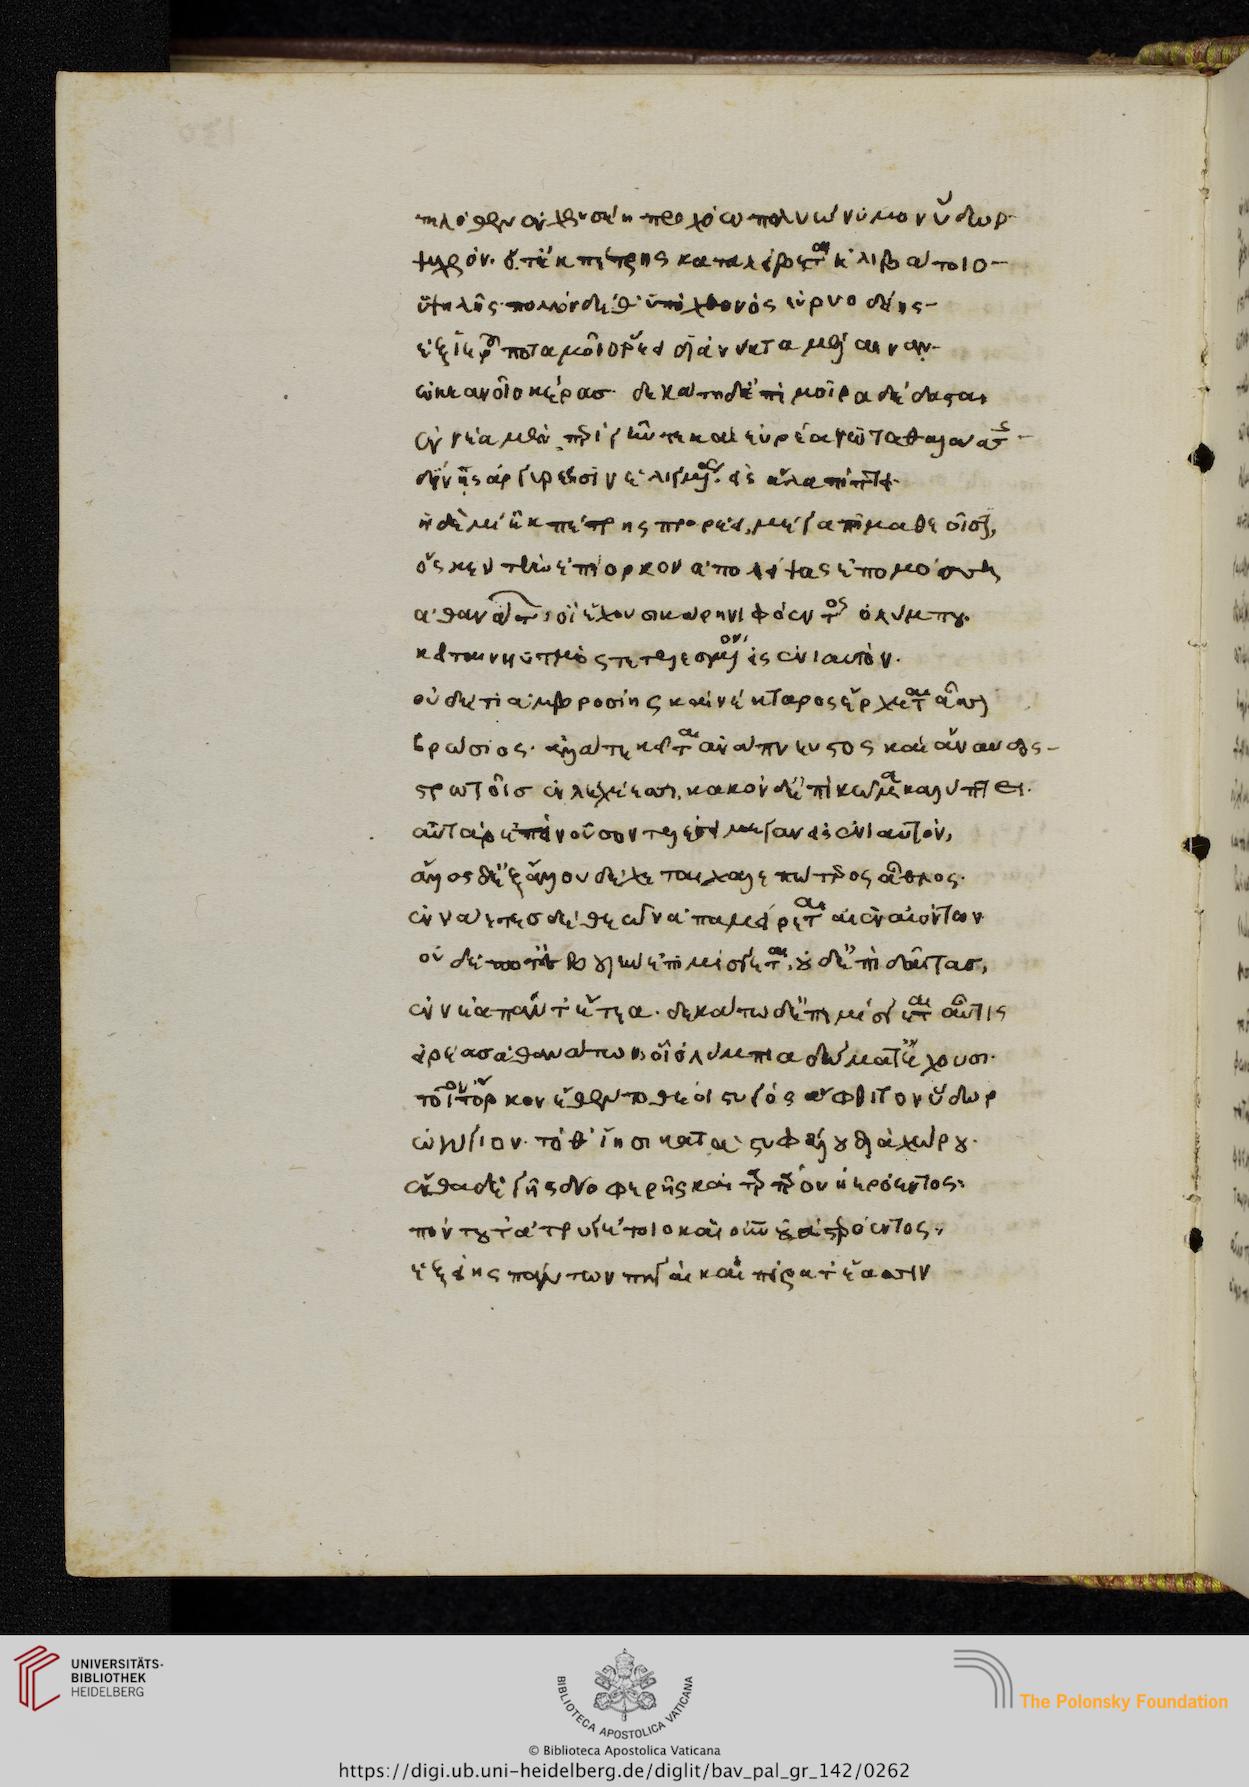 τηλόθεν ἐν χρυσέῃ προχόῳ πολυώνυμον ὕδωρ
ψυχρόν. ὅ τ' ἐκ πέτρης καταλείβεται ἠλιβάτοιο
ὑψηλῆς· πολλὸν δέ θ' ὑπὸ χθονὸς εὐρυοδείης
ἐξ ἱεροῦ ποταμοῖο ῥέει διὰ νύκτα μέλαιναν
ὠκεανοῖο κέρας· δεκάτη δ' ἐπὶ μοῖρα δέδασται
ἐννέα μὲν περὶ γῆν τε καὶ εὐρέα νῶτα θαλάσσης
δίνῃς ἀργυρέῃσιν εἱλιγμένος εἰς ἅλα πίπτει
ἡ δὲ μί' ἐκ πέτρης προρέει, μέγα πῆμα θεοῖσι,
ὅς κεν τὴν ἐπίορκον ἀπολείψας ἐπομόσσῃ
ἀθανάτων οἳ ἔχουσι κάρη νιφόεντος ὀλύμπου.
κεῖται νήϋτμος τετελεσμένον εἰς ἐνιαυτόν.
οὐδέ τι ἀμβροσίης καὶ νέκταρος ἔρχεται ἆσσον
βρώσιος· ἀλλά τε κεῖται ἀνάπνευστος καὶ ἄναυδος
στρωτοῖς ἐν λεχέεσσι, κακὸν δ' ἐπὶ κῶμα καλύπτει.
αὐτὰρ ἐπὴν νοῦσον τελέσει μέγαν εἰς ἐνιαυτόν,
ἄλλος δ' ἐξ ἄλλου δέχεται χαλεπώτερος ἆθλος.
ἐννάετες δὲ θεῶν ἀπαμείρεται αἰὲν ἐόντων
οὐδέ ποτ' ἐς βουλὴν ἐπιμίσγεται, οὐδ' ἐπὶ δαῖτας,
ἐννέα πάντ' ἔτεα. δεκάτῳ δ' ἐπιμίσγεται αὖτις
εἰρέας ἀθανάτων οἳ ὀλύμπια δώματ' ἔχουσι.
τοῖον ἄρ' ὅρκον ἔθεντο θεοὶ στυγὸς ἄφθιτον ὕδωρ
ὠγύγιον· τό θ' ἵησι καταστυφέλου διὰ χώρου.
ἔνθα δὲ γῆς δνοφερῆς καὶ ταρτάρου ἠερόεντος
πόντου τ' ἀτρυγέτοιο καὶ οὐρανοῦ ἀστερόεντος
ἑξείης πάντων πηγαὶ καὶ πείρατ' ἔασσιν
UNIVERSITÄTS-
BIBLIOTHEK
HEIDELBERG
BIBLIOTECA APOSTOLICA VATICANA
The Polonsky Foundation
© Biblioteca Apostolica Vaticana
https://digi.ub.uni-heidelberg.de/diglit/bav_pal_gr_142/0262